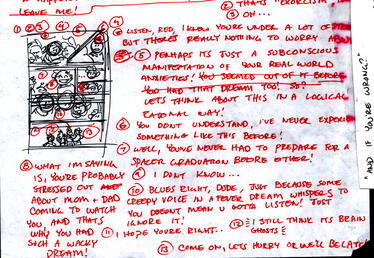 ② THATS "EXORCISM
LEAVE ME!
③ OH...
① ② ③ ⑤ ⑥ ④
④ LISTEN, RED, I KNOW YOU'RE UNDER A LOT OF
BUT THERE'S REALLY NOTHING TO WORRY
⑤ PERHAPS ITS JUST A SUBCONSCIOUS
MANIFESTATION OF YOUR REAL WORLD
ANXIETIES! YOU SEEMED OUT OF IT BEFORE
YOU HAD THAT DREAM TOO! SO?
LETS THINK ABOUT THIS IN A LOGICAL
RATIONAL WAY!
⑥ YOU DONT UNDERSTAND, I'VE NEVER EXPERI-
SOMETHING LIKE THIS BEFORE!
⑦ WELL, YOUVE NEVER HAD TO PREPARE FOR A
SPACER GRADUATION BEFORE EITHER!
⑧ WHAT I'M SAYING
IS, YOU'RE PROBABLY
STRESSED OUT
ABOUT MOM + DAD
COMING TO WATCH
YOU, AND THATS
WHY YOU HAD
SUCH A WACKY
DREAM!
⑨ I DONT KNOW...
⑩ BLUES RIGHT, DUDE, JUST BECAUSE SOME
CREEPY VOICE IN A FEVER DREAM WHISPERS TO
YOU DOESNT MEAN U GOTTA LISTEN! JUST
IGNORE IT!
⑪ I HOPE YOU'RE RIGHT..
⑫ I STILL THINK ITS BRAIN
GHOSTS
⑬ COME ON, LETS HURRY OR WE'LL BE LATE
"AND IF YOU'RE WRONG?"